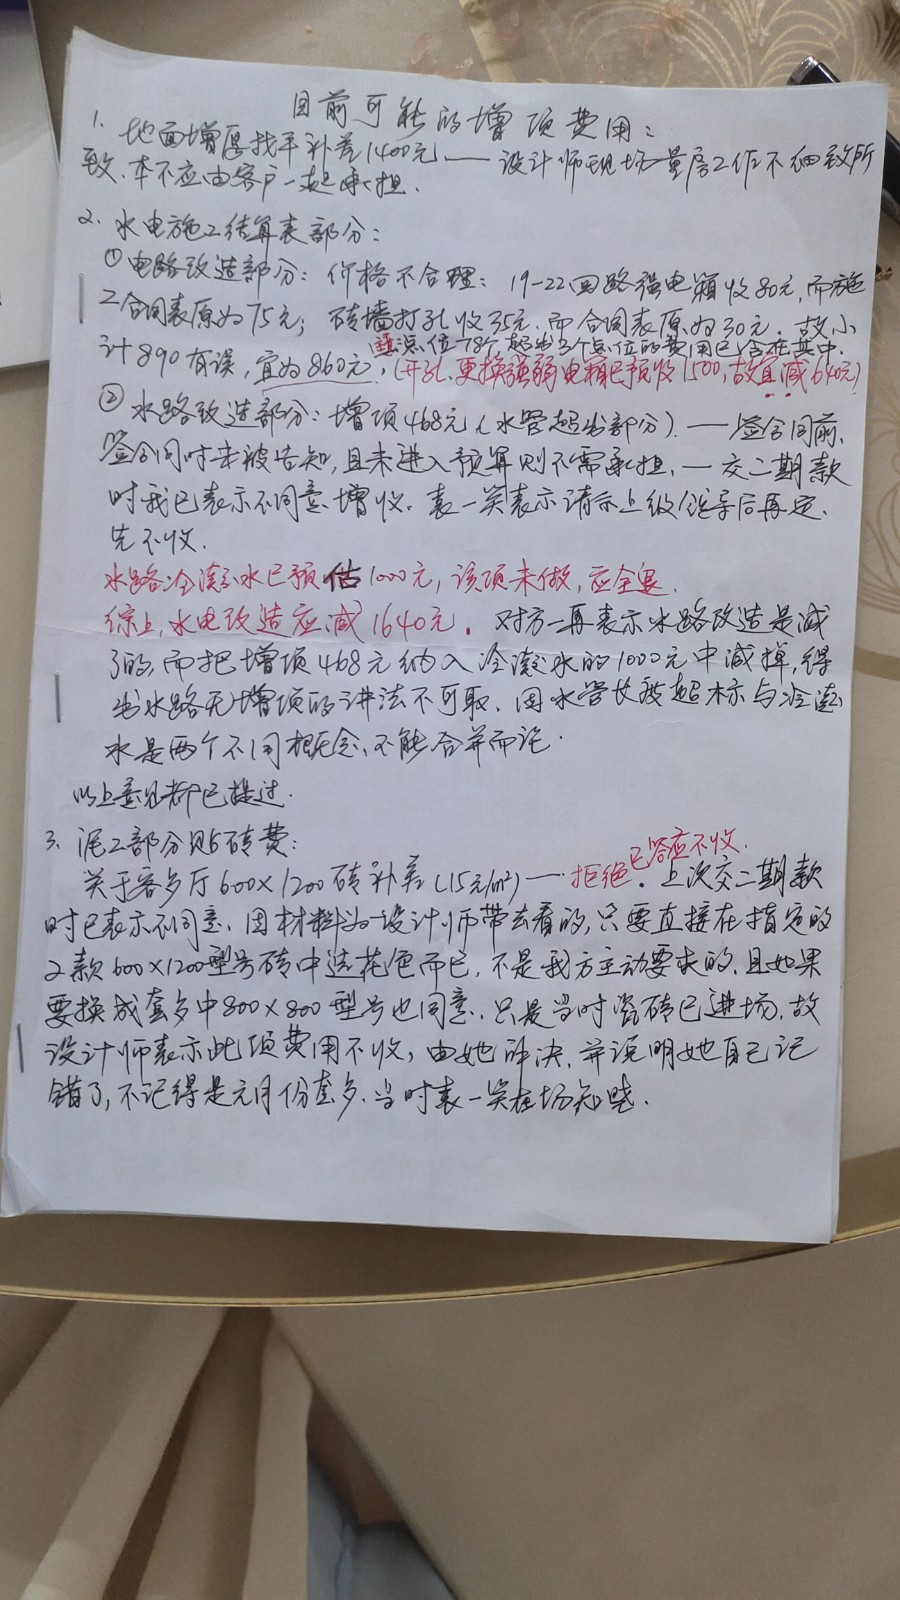 目前可能的增项费用:
1. 地面增厚找平补差1400元——设计师现场量房工作不细致所
致、本不应由客户一起承担.
2. 水电施工结算表部分:
①电路改造部分: 价格不合理: 19-22回路强电箱收80元,而施
工合同表原为75元; 砖墙打孔收35元,而合同表原为30元. 故小
计890有误,宜为860元,
点位78个超出3个点位的费用已含在其中.
(开孔,更换强弱电箱已预收1500,故宜减640元)
②水路改造部分:增项468元(水管超出部分).——签合同前、
签合同时未被告知,且未进入预算则不需承担.—交二期款
时我已表示不同意增收.袁一笑表示请示上级领导后再定、
先不收.
水路冷凝水已预估1000元,该项未做,应全退.
综上,水电改造应减1640元. 对方一再表示水路改造是减
了的,而把增项468元纳入冷凝水的1000元中减掉,得
出水路无增项的讲法不可取、因水管长度超标与冷凝
水是两个不同概念,不能合并而论.
以上意见都已提过.
3. 泥工部分贴砖费:
关于客餐厅600×1200砖补差(15元/m²)——拒绝.已答应不收. 上次交二期款
时已表示不同意、因材料为设计师带去看的,只要直接在指定的
2款600×1200型号砖中选花色而已,不是我方主动要求的.且如果
要换成套餐中800×800型号也同意.只是当时瓷砖已进场.故
设计师表示此项费用不收,由她解决.并说明她自己记
错了,不记得是元月份套餐.当时袁一笑在场知晓.